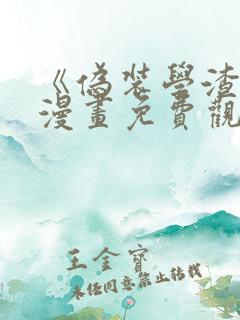 《偽裝學渣
漫畫免費觀
王金寶
未經同意禁止轉載